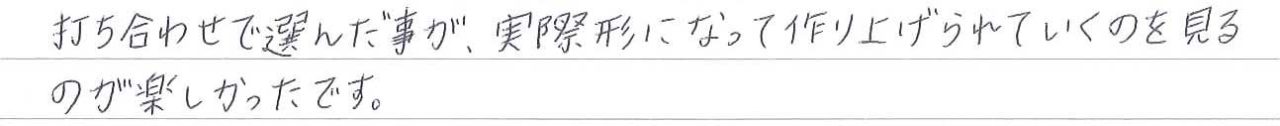 打ち合わせで選んだ事が、実際形になって作り上げられていくのを見る
のが楽しかったです。